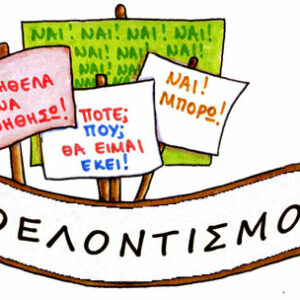 ΝΑΙ! ΝΑΙ! ΝΑΙ! ΝΑΙ!
ΝΑΙ! ΝΑΙ! ΝΑΙ! ΝΑΙ!
ΝΑΙ! ΝΑΙ!
ΝΑΙ! ΝΑΙ!
ΗΘΕΛΑ
ΝΑ
ΗΘΗΣΩ!
ΠΟΤΕ;
ΠΟΥ;
ΘΑ ΕΙΜΑΙ
ΕΚΕΙ!
ΝΑΙ!
ΜΠΟΡΩ!
ΘΕΛΟΝΤΙΣΜΟ